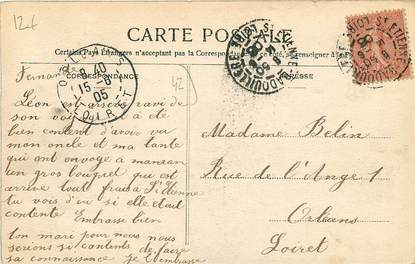 12f
CARTE POSTALE
Certains Pays Étrangers n'acceptant pas la Correspondance se renseigner à
CORRESPONDANCE
Fernande
Léon est arrivé ravi de
son voy a été
bien content d'avoir vu
mon oncle et ma tante
qui ont envoyé à maman
un gros bouquet qui est
arrivé tout frais à St Etienne
tu vois d'ou si elle était
contente Embrasse bien
ton mari pour nous nous
serions si contents de faire
sa connaissance Je t'embrasse
ORLEANS
9 40
15-6
05
LOIRET
42
ST ETIENNE
LOIRE
Madame Belin
Rue de l'Ange 1
Orléans
Loiret